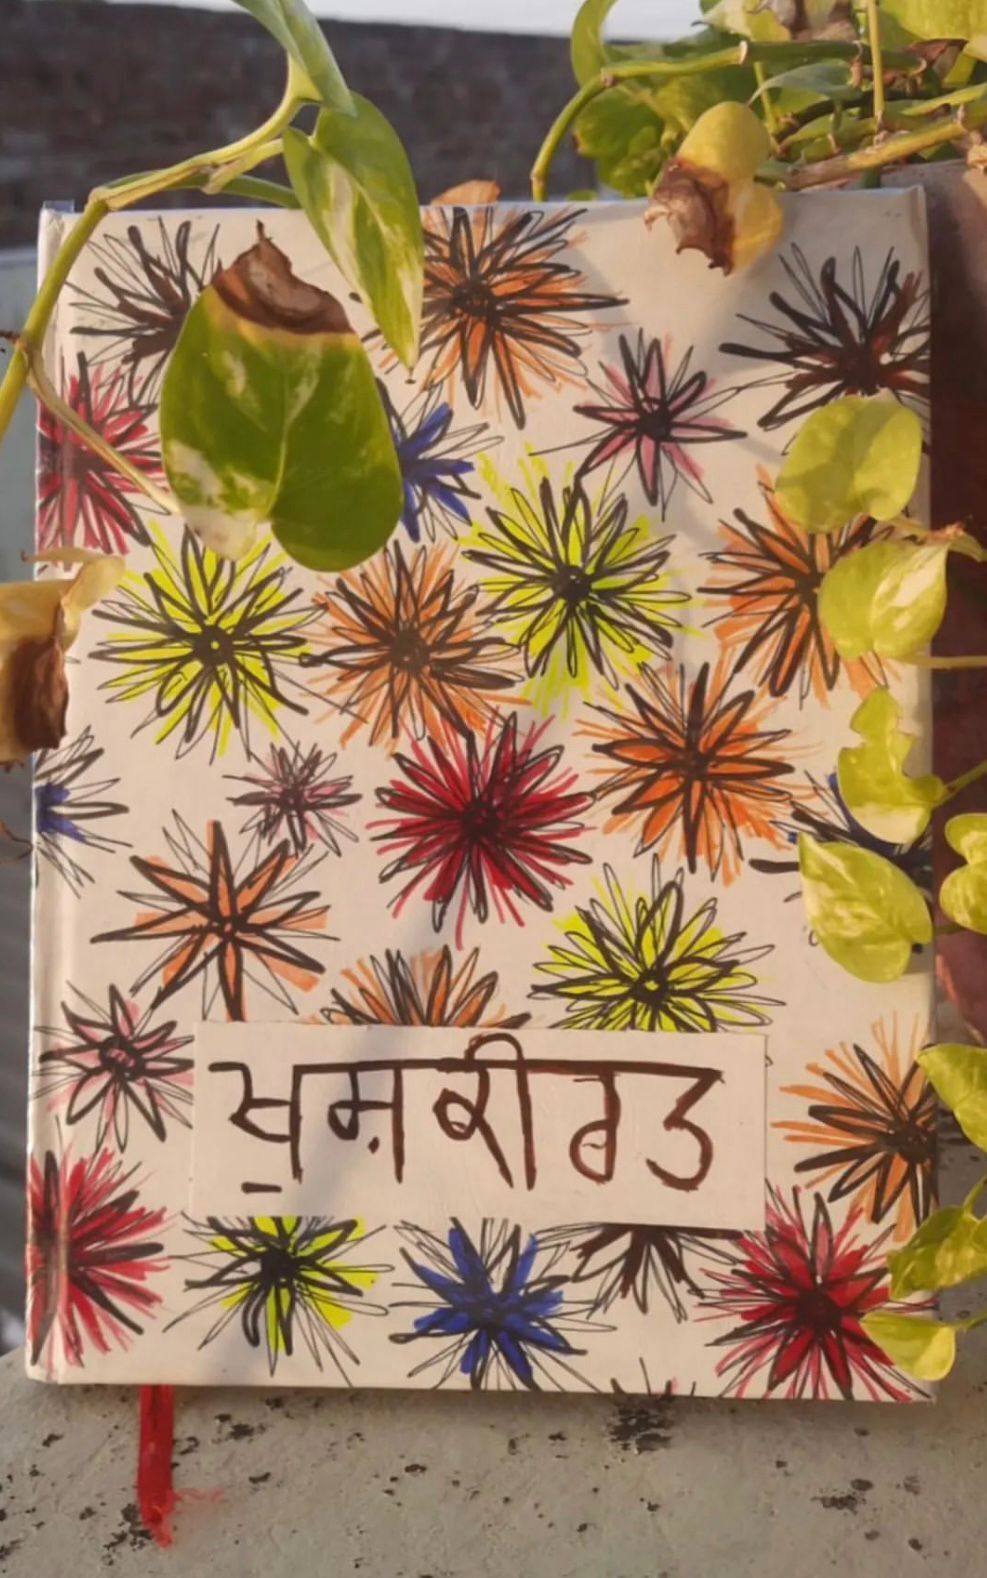 ਖੁਸ਼ਕੀਰਤ